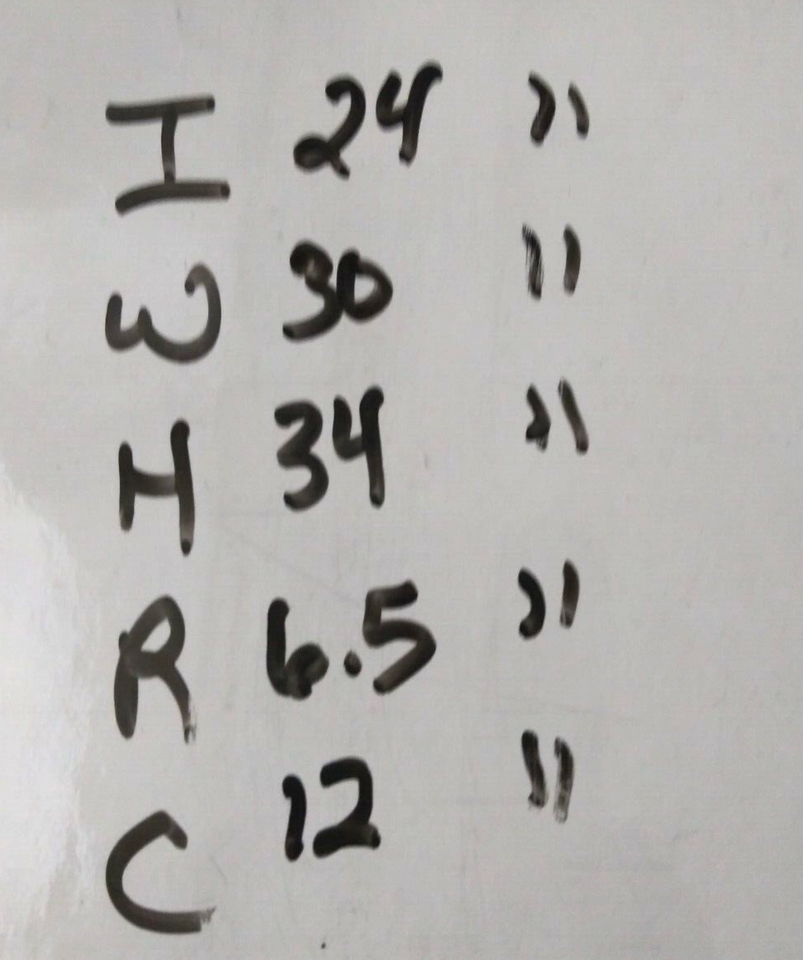 I 24 "
W 30 "
H 34 "
R 6.5 "
C 12 "